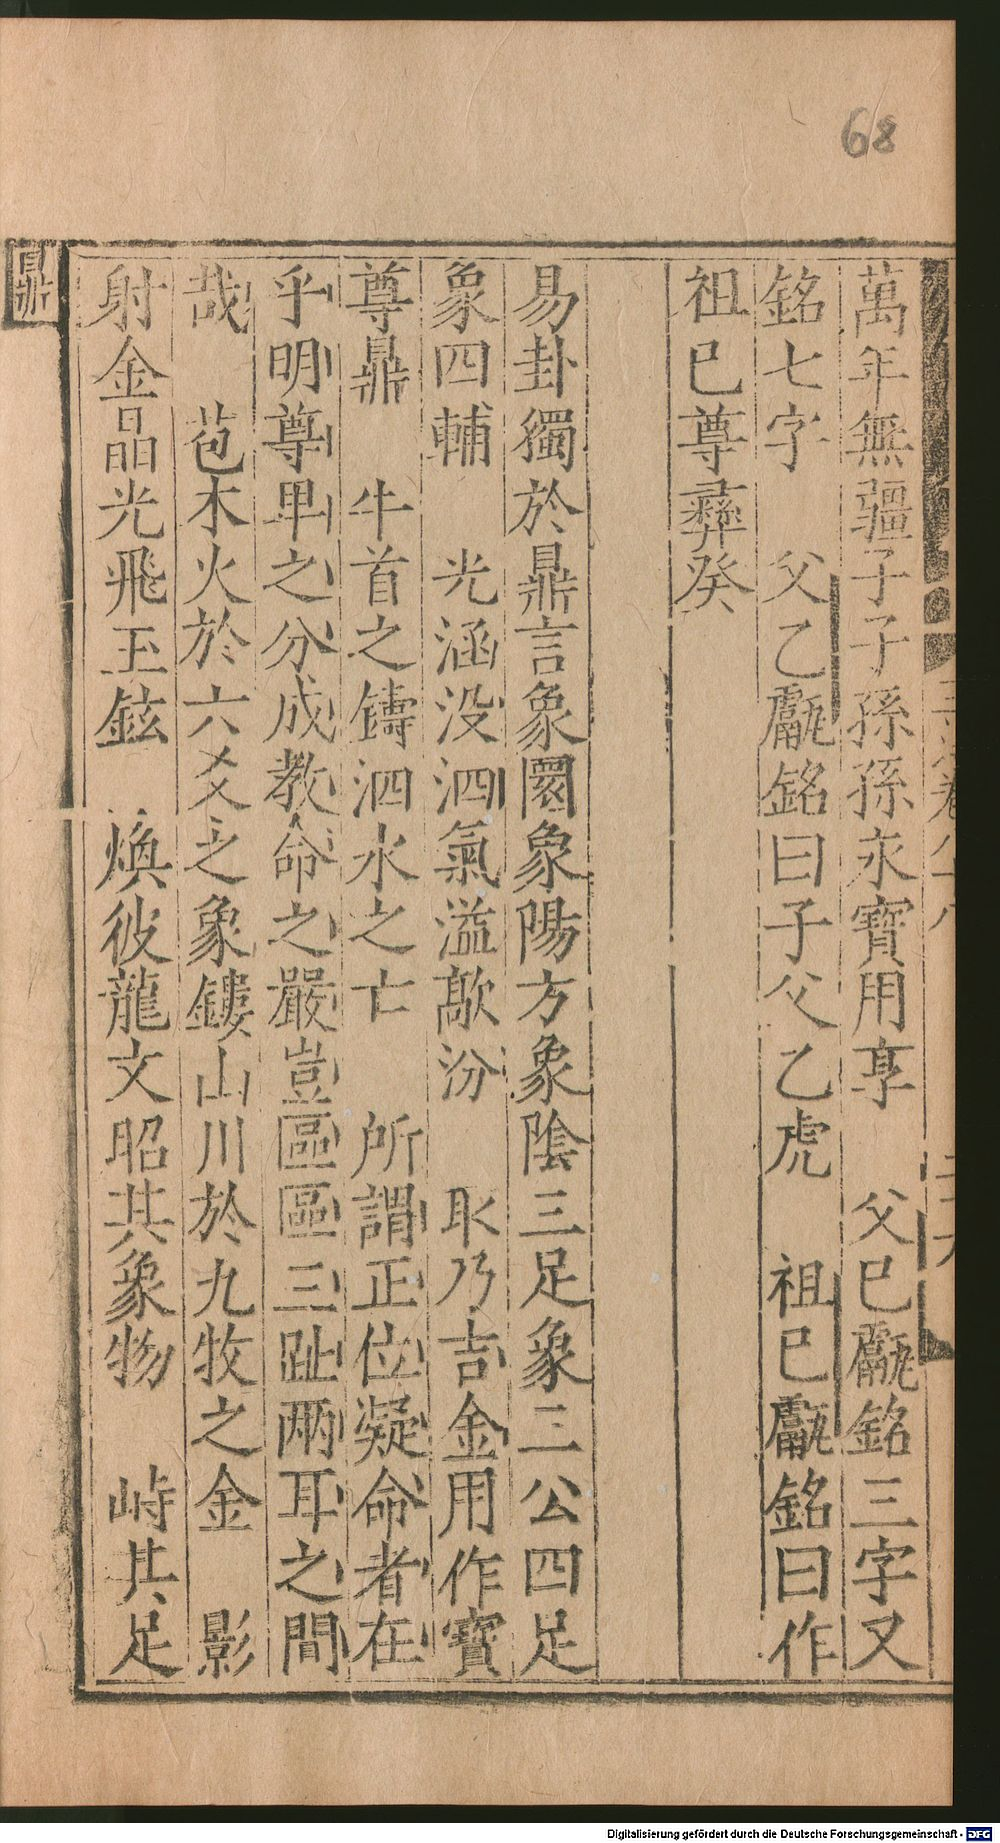 68
萬年無疆子子孫孫永寶用享　父巳甗銘三字又
銘七字　父乙甗銘曰子父乙虎　祖巳甗銘曰作
祖巳尊彛癸
易卦獨於鼎言象圜象陽方象陰三足象三公四足
象四輔　光涵没泗氣溢歊汾　㪅乃吉金用作寶
尊鼎　牛首之鑄泗水之亡　所謂正位凝命者在
乎明尊卑之分成教命之嚴豈區區三趾兩耳之間
哉　苞木火於六爻之象鏤山川於九牧之金　影
射金晶光飛玉鉉　煥彼龍文昭其象物　峙其足
鼎
Digitalisierung gefördert durch die Deutsche Forschungsgemeinschaft - DFG